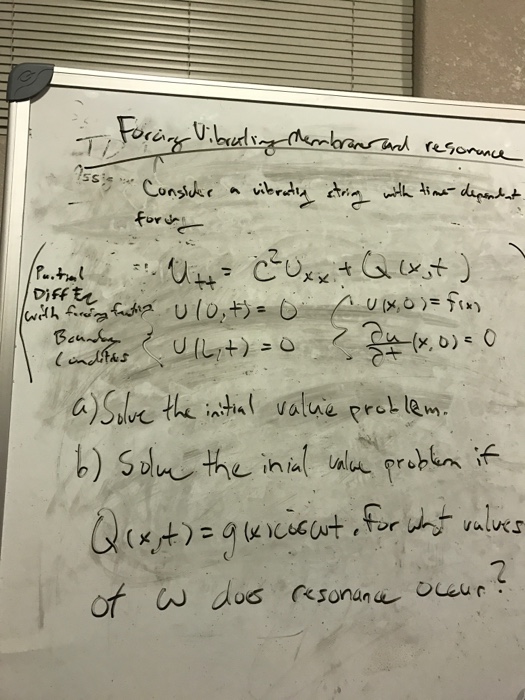 Forcing Vibrating Membranes and resonance
Consider a vibrating string with time-dependent
forcing
Partial
Diff Eq
with forcing function
Boundary
Conditions
U_tt = c²U_xx + Q(x,t)
U(0,t) = 0
U(L,t) = 0
U(x,0) = f(x)
∂u/∂t (x,0) = 0
a) Solve the initial value problem.
b) Solve the inial value problem if
Q(x,t) = g(x)cosωt. For what values
of ω does resonance occur?